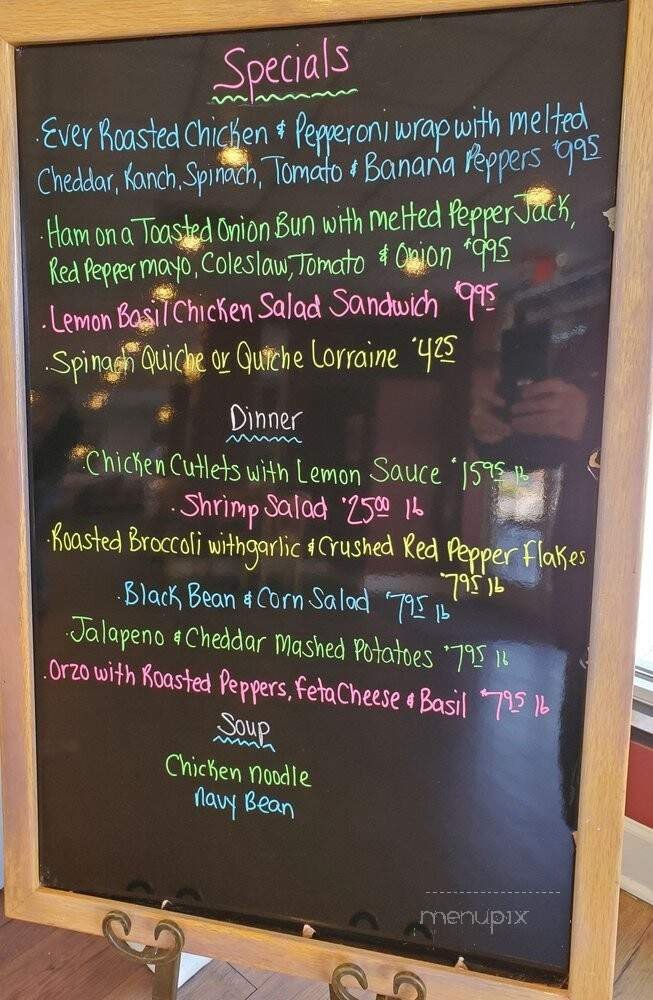 Specials
. Ever Roasted Chicken & Pepperoni wrap with melted
Cheddar, Ranch, Spinach, Tomato & Banana Peppers $9.95
. Ham on a Toasted Onion Bun with melted Pepper Jack,
Red Pepper mayo, Coleslaw, Tomato & Onion $9.95
. Lemon Basil Chicken Salad Sandwich $9.95
. Spinach Quiche or Quiche Lorraine $4.25
Dinner
. Chicken Cutlets with Lemon Sauce $15.95 lb
. Shrimp Salad $25.00 lb
. Roasted Broccoli with garlic & Crushed Red Pepper flakes
$7.95 lb
. Black Bean & Corn Salad $7.95 lb
. Jalapeno & Cheddar Mashed Potatoes $7.95 lb
. Orzo with Roasted Peppers, Feta Cheese & Basil $7.95 lb
Soup
Chicken noodle
navy Bean
menupix